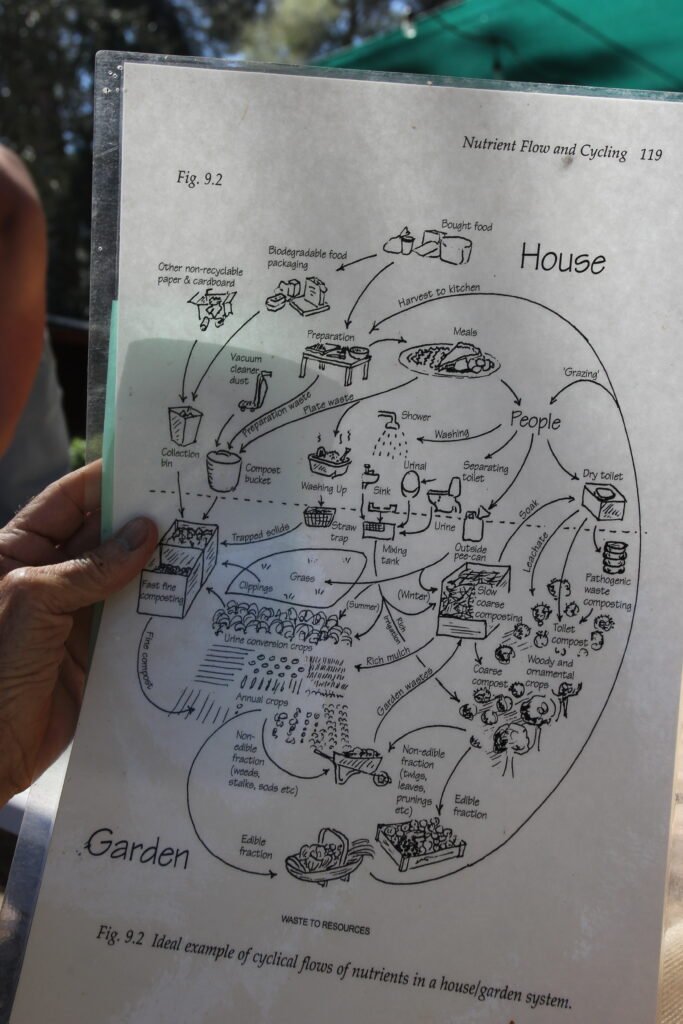 Nutrient Flow and Cycling 119
Fig. 9.2
Bought food
House
Biodegradable food
packaging
Other non-recyclable
paper & cardboard
Harvest to kitchen
Preparation
Meals
Vacuum
cleaner
dust
'Grazing'
Preparation waste
Plate waste
Shower
People
Washing
Collection
bin
Compost
bucket
Washing Up
Sink
Urinal
Separating
toilet
Dry toilet
Urine
Straw
trap
Trapped solids
Mixing
tank
Outside
pee-can
Soak
Leachate
Pathogenic
waste
composting
Fast fine
composting
Clippings
Grass
(Summer)
(Winter)
Slow
coarse
composting
Toilet
compost
Urine conversion crops
Rich
irrigation
Fine compost
Rich mulch
Woody and
ornamental
crops
Coarse
compost
Annual crops
Garden wastes
Non-
edible
fraction
(weeds,
stalks, sods etc)
Non-edible
fraction
(twigs,
leaves,
prunings
etc)
Edible
fraction
Garden
Edible
fraction
WASTE TO RESOURCES
Fig. 9.2 Ideal example of cyclical flows of nutrients in a house/garden system.